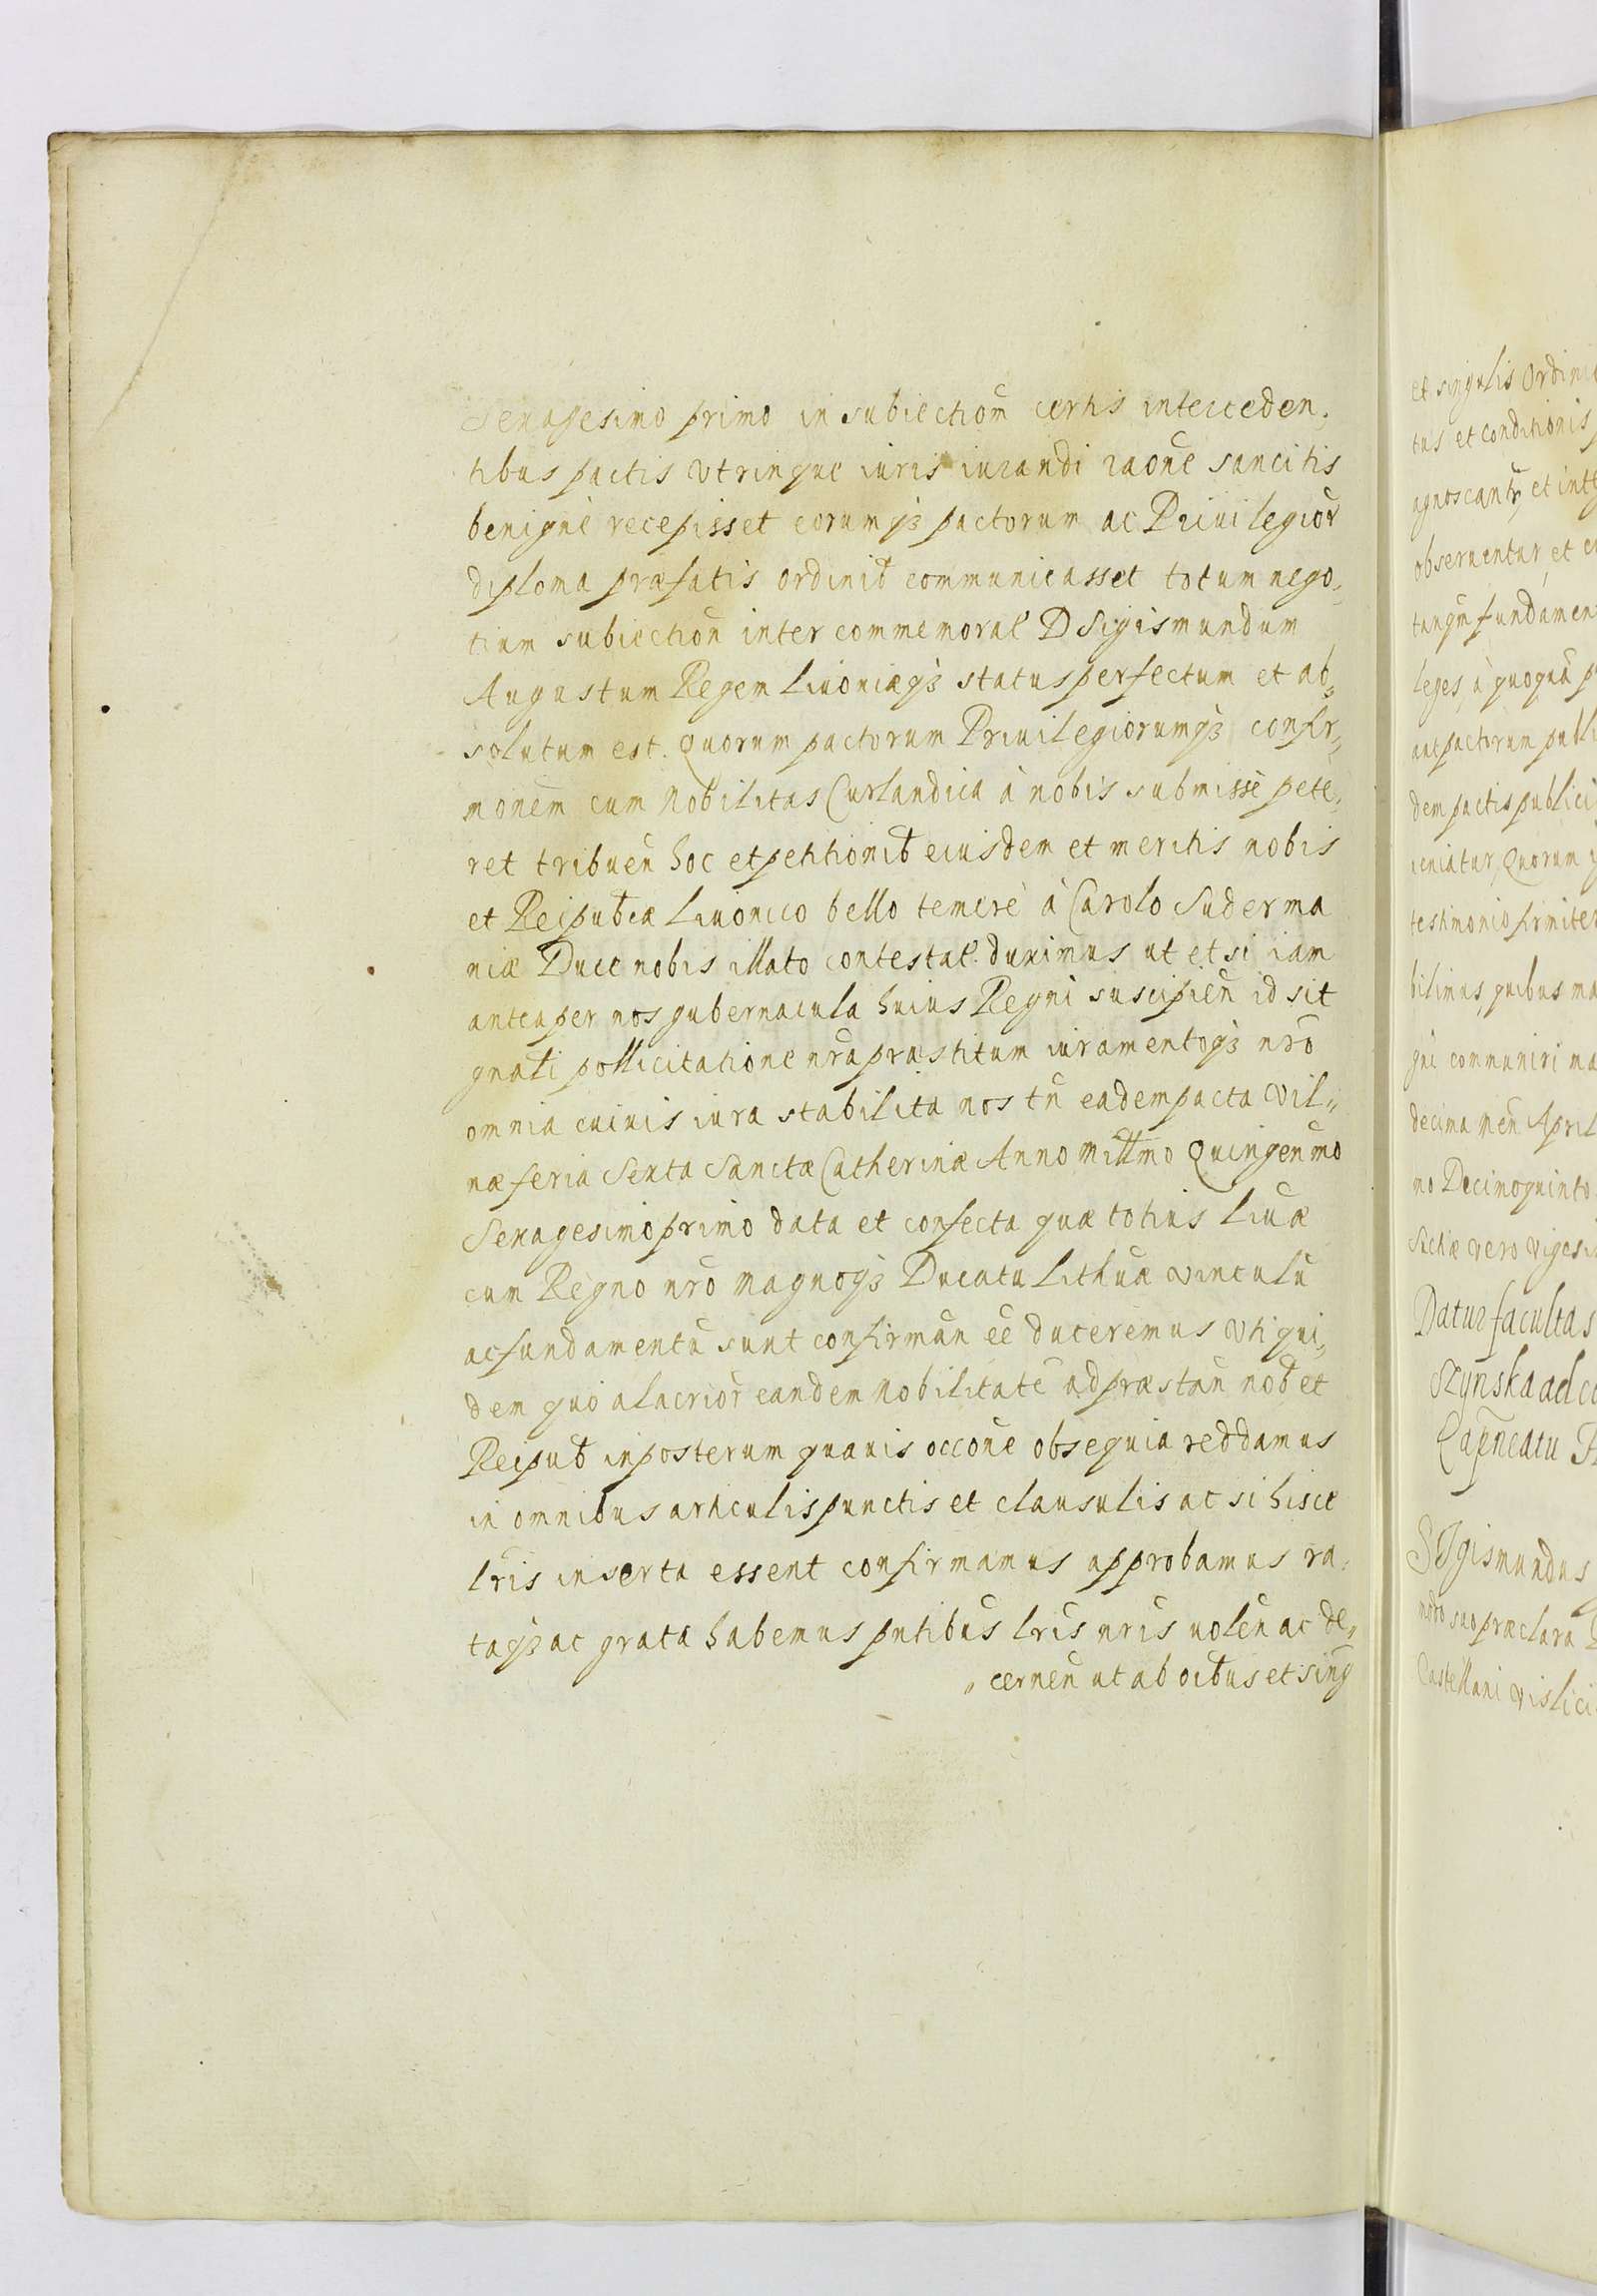 Sexagesimo primo in subiection̄ certis interceden„
tibus pactis vtrinque iuris iurandi raōne sancitis
benignè recepisset eorumqз pactorum ac Priuilegior̄
diploma præfatis ordinib̄ communicasset totum nego„
tium subiection̄ inter commemorat̄ D Sigismundum
Augustum Regem Liuoniæqз status perfectum et ab„
solutum est. Quorum pactorum Priuilegiorumqз confir„
mōnem cum Nobilitas Curlandica à nobis submissè pete„
ret tribuen̄ hoc et petitionib̄ eiusdem et meritis nobis
et Reipub̄cæ Liuonico bello temerè à Carolo Suderma
niæ Duce nobis illato contestat̄. duximus ut et si iam
antea per nos gubernacula huius Regni suscipien̄ id sit
gnāli pollicitatione nr̄a præstitum iuramentoqз nr̄o
omnia cuiuis iura stabilita nos tn̄ eadem pacta Vil„
næ feria Sexta Sanctæ Catherinæ Anno Millmo Quingen̄mo
Sexagesimo primo data et confecta quæ totius Liūæ
cum Regno nr̄o Magnoqз Ducatu Lithūæ vinculū
ac fundamentū sunt confirman̄ eē duceremus Vti qui„
dem quò alacrior̄ eandem Nobilitatē ad præstan̄ nob̄ et
Reipub̄ inposterum quauis occōne obsequia reddamus
in omnibus articulis punctis et clausulis ac si hisce
lr̄is inserta essent confirmamus approbamus ra„
taqз ac grata habemus pn̄tibus lr̄is nr̄is uolen̄ ac de„
„cernen̄ ut ab oib̄us et sing
et singulis Ordini
tus et conditionis
agnoscantur, et int
obseruentur, et
tanqm̄ fundamen
leges, à quoquā
aut pactorum publi
dem pactis publici
ueniatur, Quorum
testimonio firmiter
bilimus, quibus ma
gni communiri ma
decima Men̄ April
no Decimoquinto
Sueciæ vero Vigesi
Datur facultas
szynska ad
Cap̄neatu
SIgismundus
suo præclara
Castellani Vislici